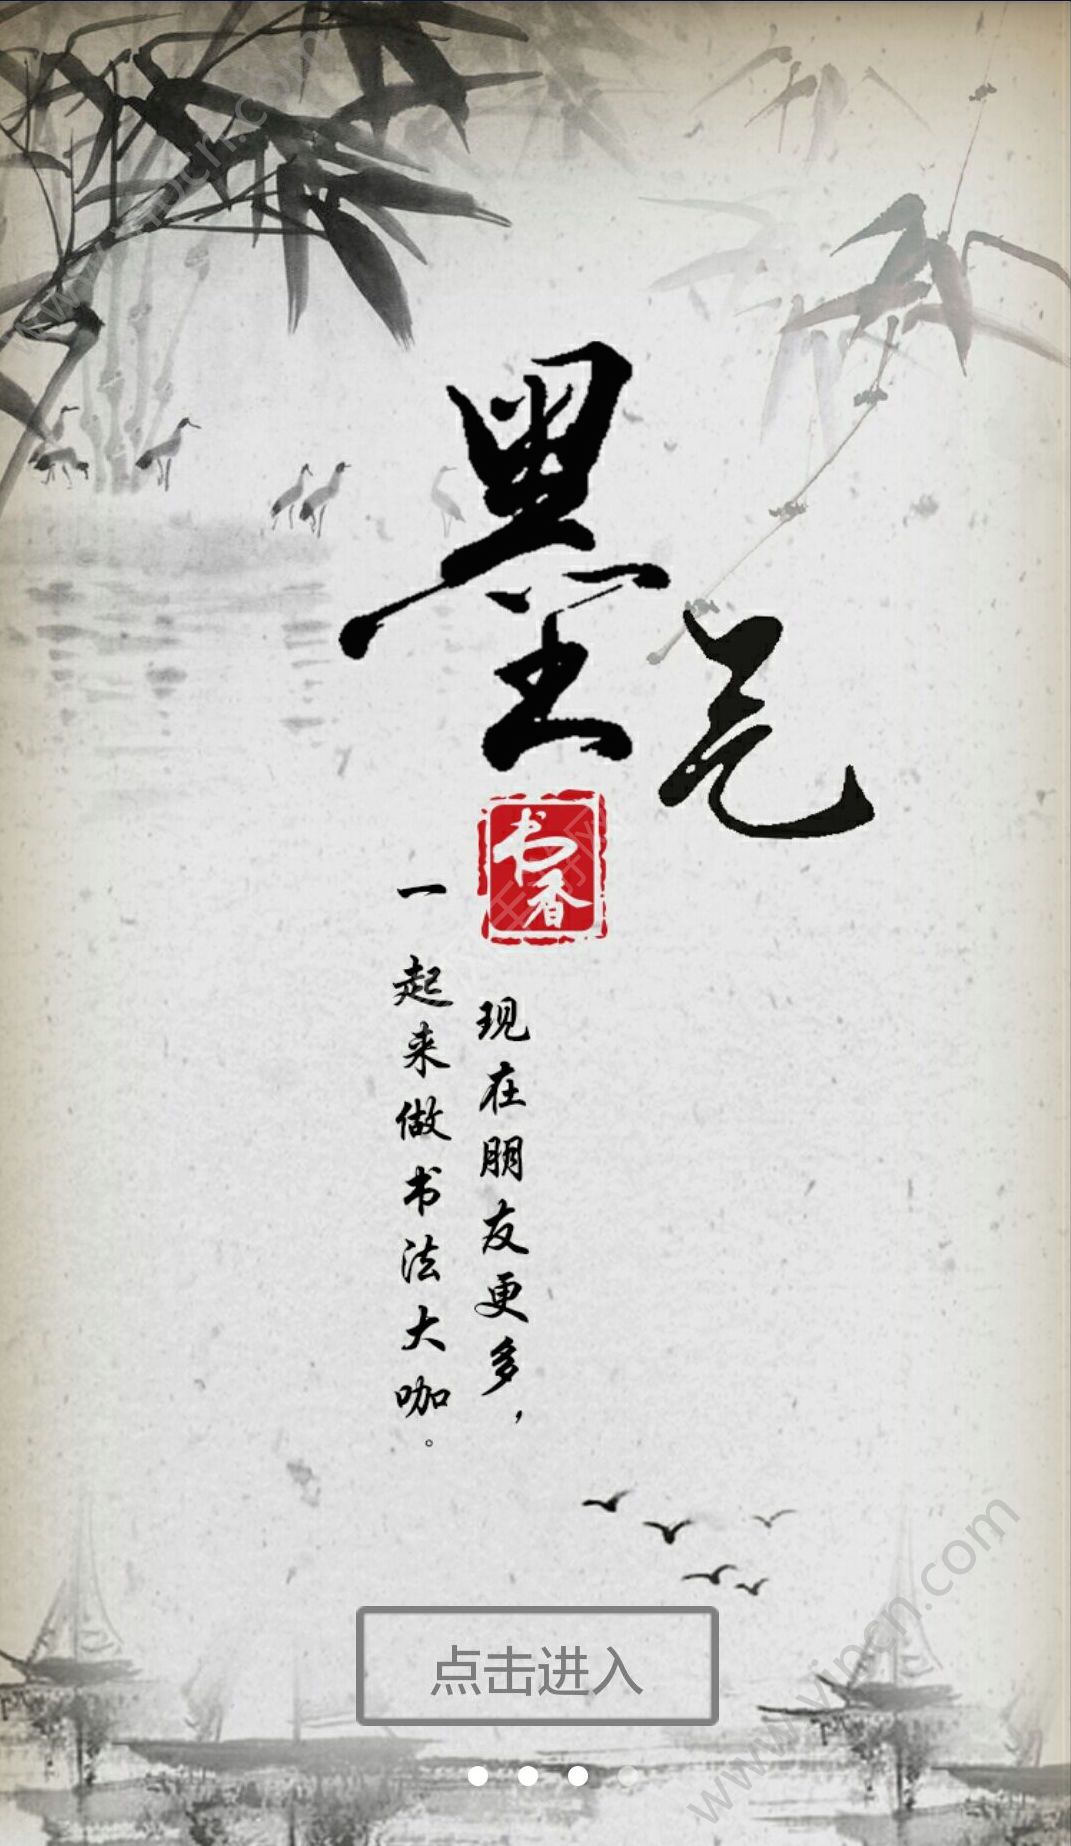 墨
气
书香
现在朋友更多，
一起来做书法大咖。
点击进入
www.vipcn.com
www.vipcn.com